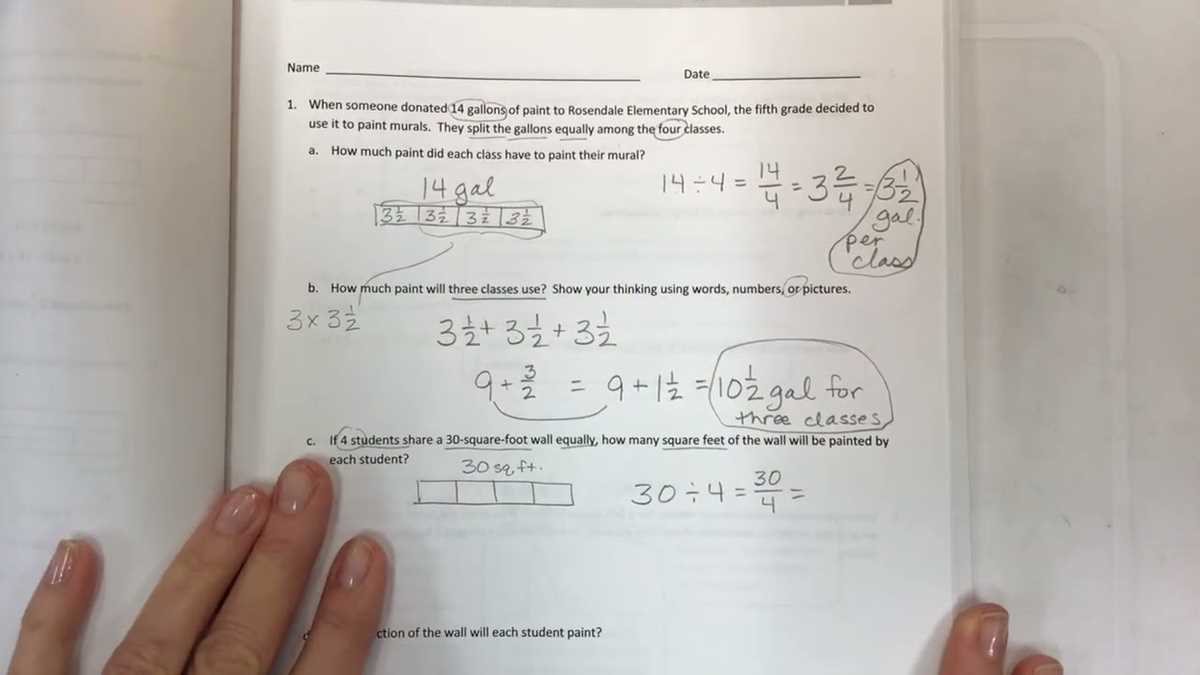 Name Date
1. When someone donated 14 gallons of paint to Rosendale Elementary School, the fifth grade decided to
use it to paint murals. They split the gallons equally among the four classes.
a. How much paint did each class have to paint their mural?
14 gal
3 1/2 3 1/2 3 1/2 3 1/2
14 ÷ 4 = 14/4 = 3 2/4 = 3 1/2
gal.
per
class
b. How much paint will three classes use? Show your thinking using words, numbers, or pictures.
3 x 3 1/2
3 1/2 + 3 1/2 + 3 1/2
9 + 3/2 = 9 + 1 1/2 = 10 1/2 gal for
three classes
c. If 4 students share a 30-square-foot wall equally, how many square feet of the wall will be painted by
each student?
30 sq. ft.
30 ÷ 4 = 30/4 =
ction of the wall will each student paint?